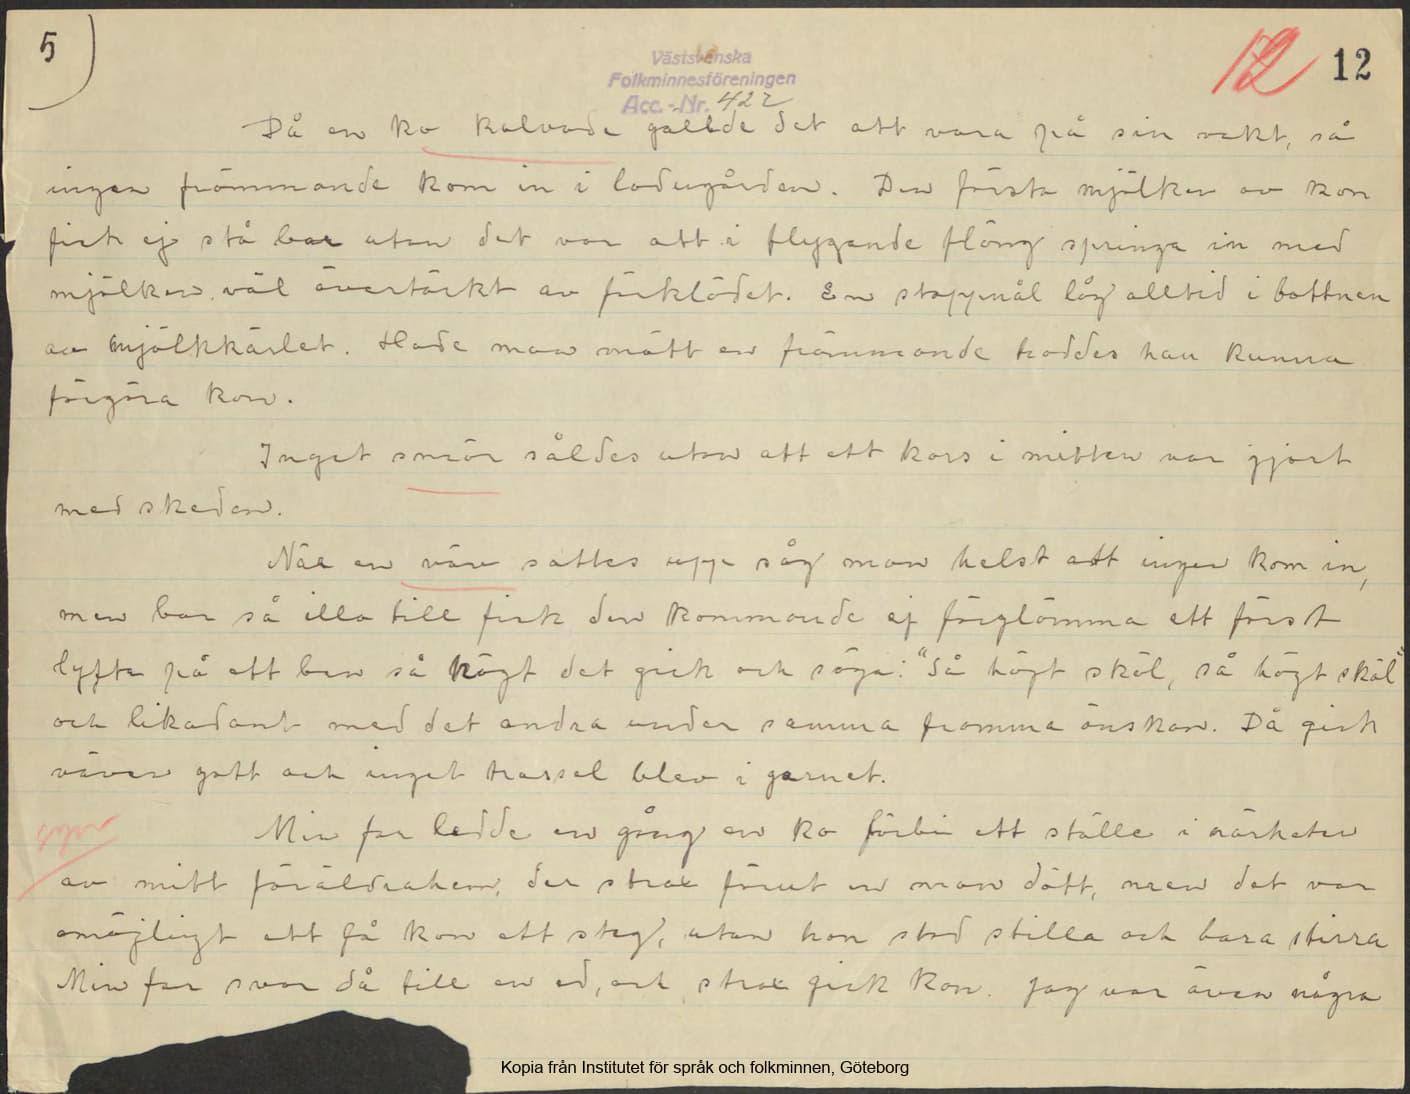 5)
12 12
Västsvenska
Folkminnesföreningen
Acc.-Nr. 422
Då en ko kalvade gallde det att vara på sin vakt, så
ingen främmande kom in i ladugården. Den första mjölken av kon
fick ej stå bar utan det var att i flygande fläng springa in med
mjölken väl övertäckt av förklädet. En stoppnål låg alltid i bottnen
av mjölkkärlet. Hade man mött en främmande troddes han kunna
förgöra kon.
Inget smör såldes utan att ett kors i mitten var gjort
med skeden.
När en väv sattes upp såg man helst att ingen kom in,
men bar så illa till fick den kommande ej förglömma att först
lyfta på ett ben så högt det gick och säga: "Så högt skäl, så högt skäl"
och likadant med det andra under samma fromma önskan. Då gick
väven gott och inget trassel blev i garnet.
Min far ledde en gång en ko förbi ett ställe i närheten
av mitt föräldrahem, der strax förut en man dött, men det var
omöjligt att få kon ett steg, utan hon stod stilla och bara stirra
Min far svor då till en ed, och strax gick kon. Jag var även några
Kopia från Institutet för språk och folkminnen, Göteborg